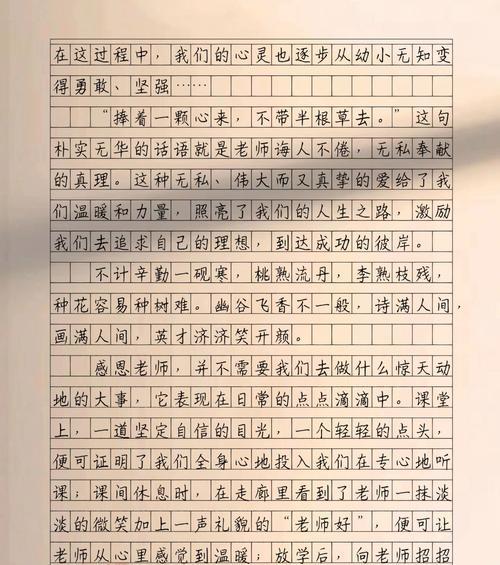 在这过程中，我们的心灵也逐步从幼小无知变
得勇敢、坚强……
“捧着一颗心来，不带半根草去。”这句
朴实无华的话语就是老师诲人不倦，无私奉献
的真理。这种无私、伟大而又真挚的爱给了我
们温暖和力量，照亮了我们的人生之路，激励
我们去追求自己的理想，到达成功的彼岸。
不计辛勤一砚寒，桃熟流丹，李熟枝残，
种花容易种树难。幽谷飞香不一般，诗满人间，
画满人间，英才济济笑开颜。
感恩老师，并不需要我们去做什么惊天动
地的大事，它表现在日常的点点滴滴中。课堂
上，一道坚定自信的目光，一个轻轻的点头，
便可证明了我们全身心地投入我们在专心地听
课；课间休息时，在走廊里看到了老师一抹淡
淡的微笑加上一声礼貌的“老师好”，便可让
老师从心里感觉到温暖；放学后，向老师招招